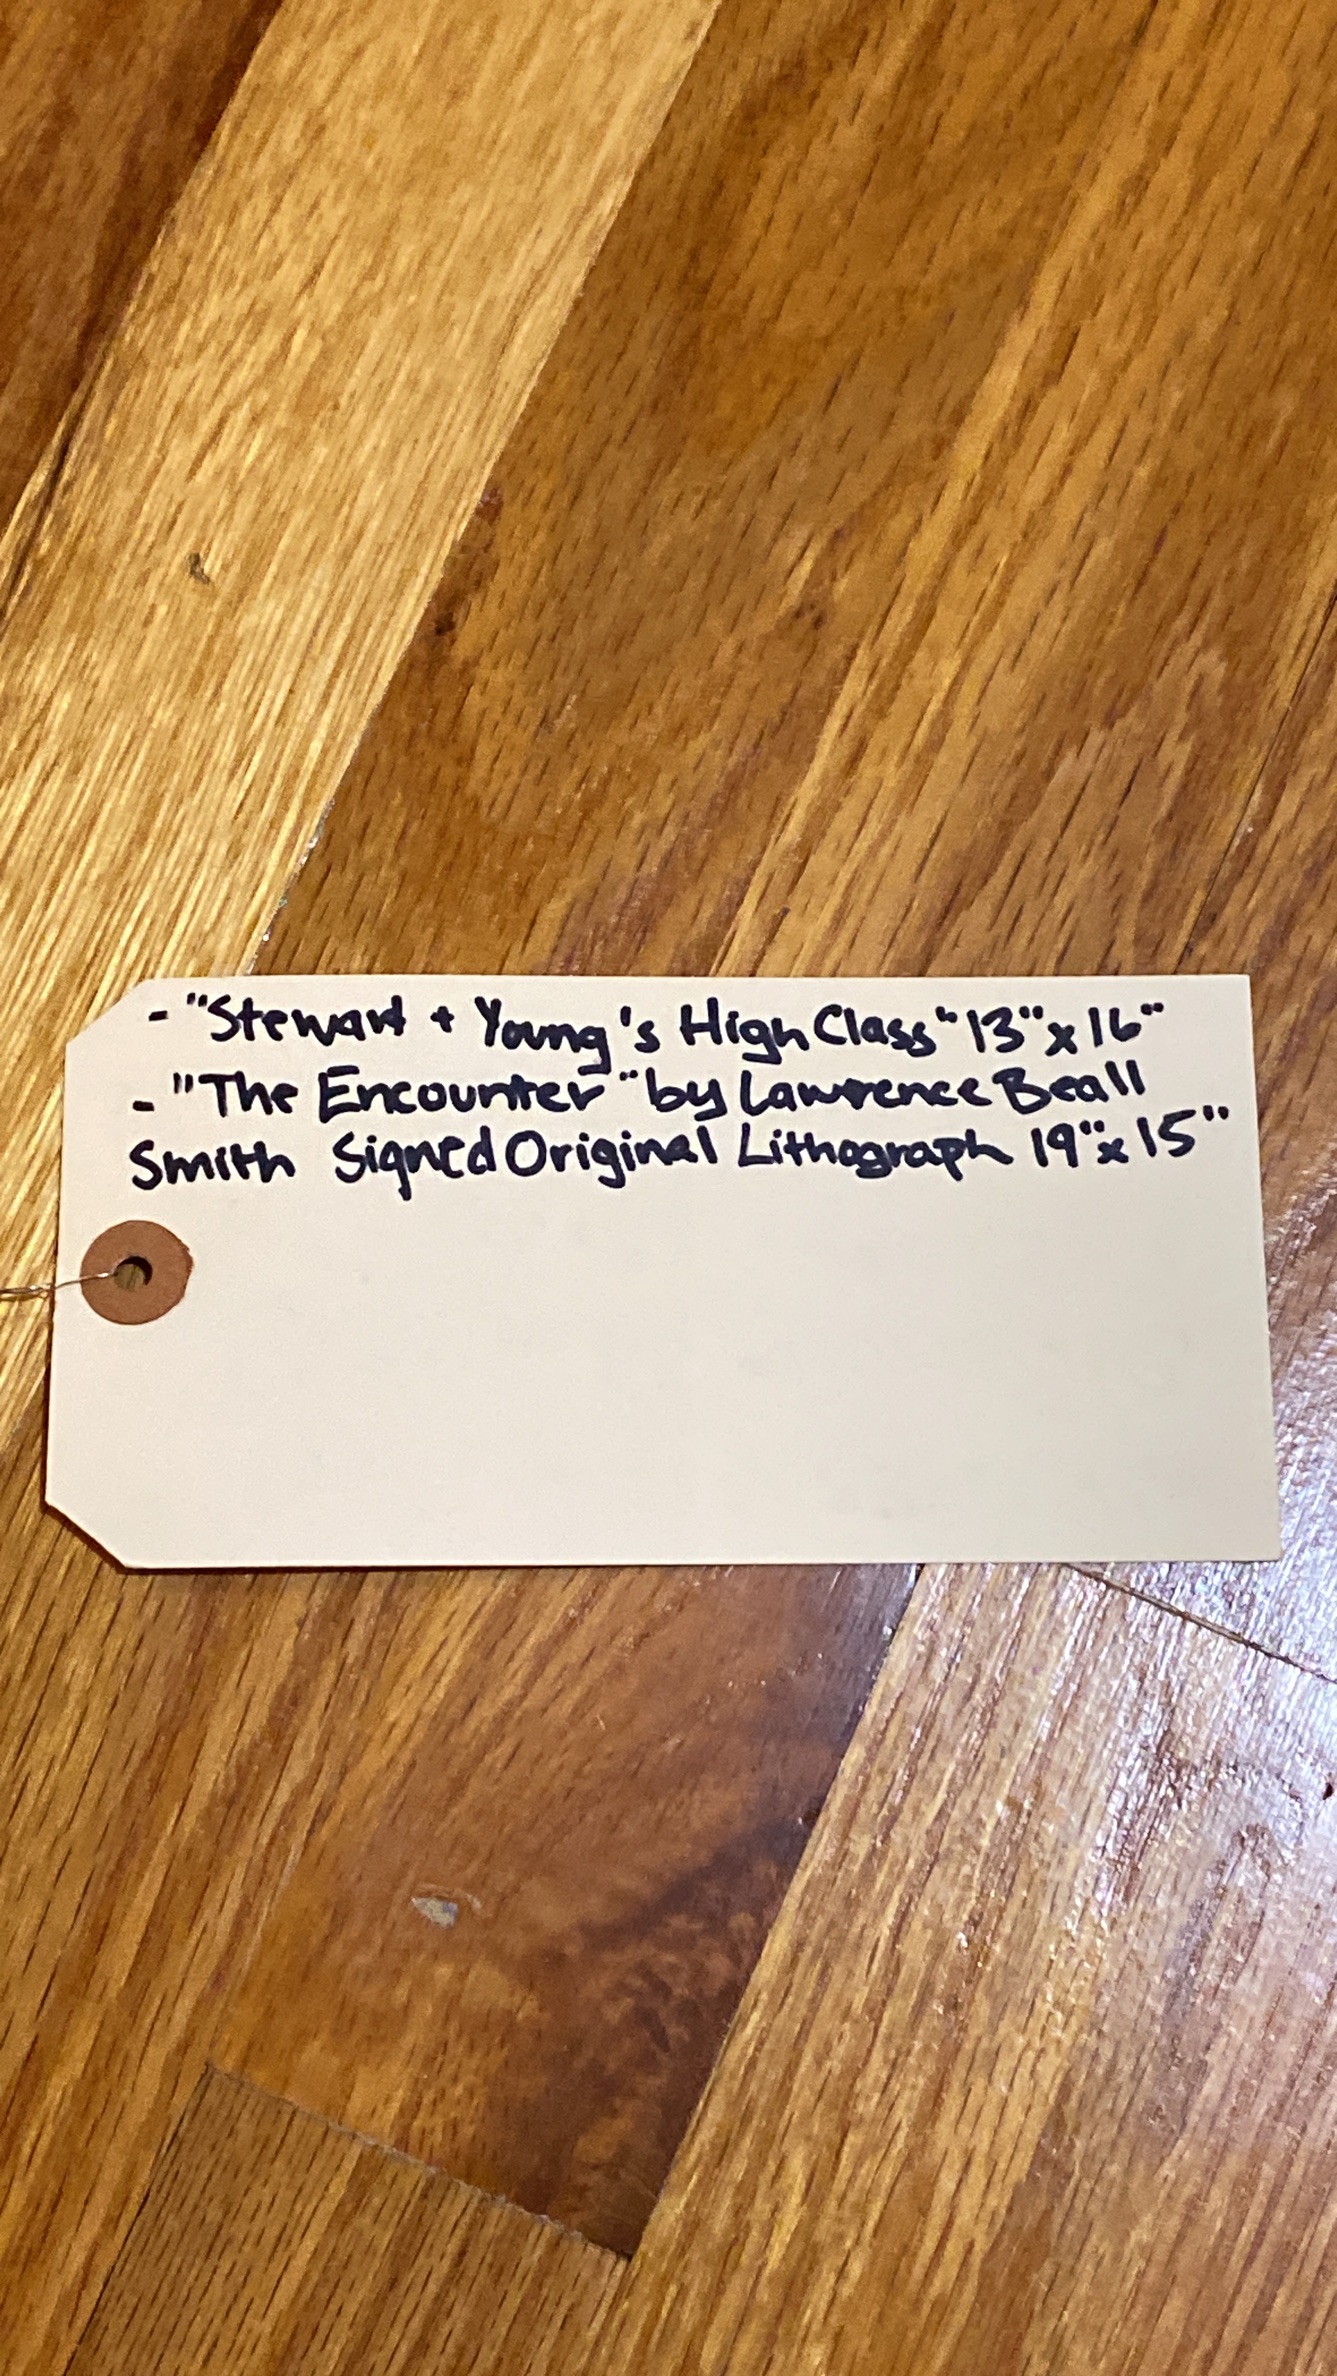 - "Stewart + Young's High Class" 13" x 16"
- "The Encounter" by Lawrence Beall
Smith Signed Original Lithograph 19" x 15"